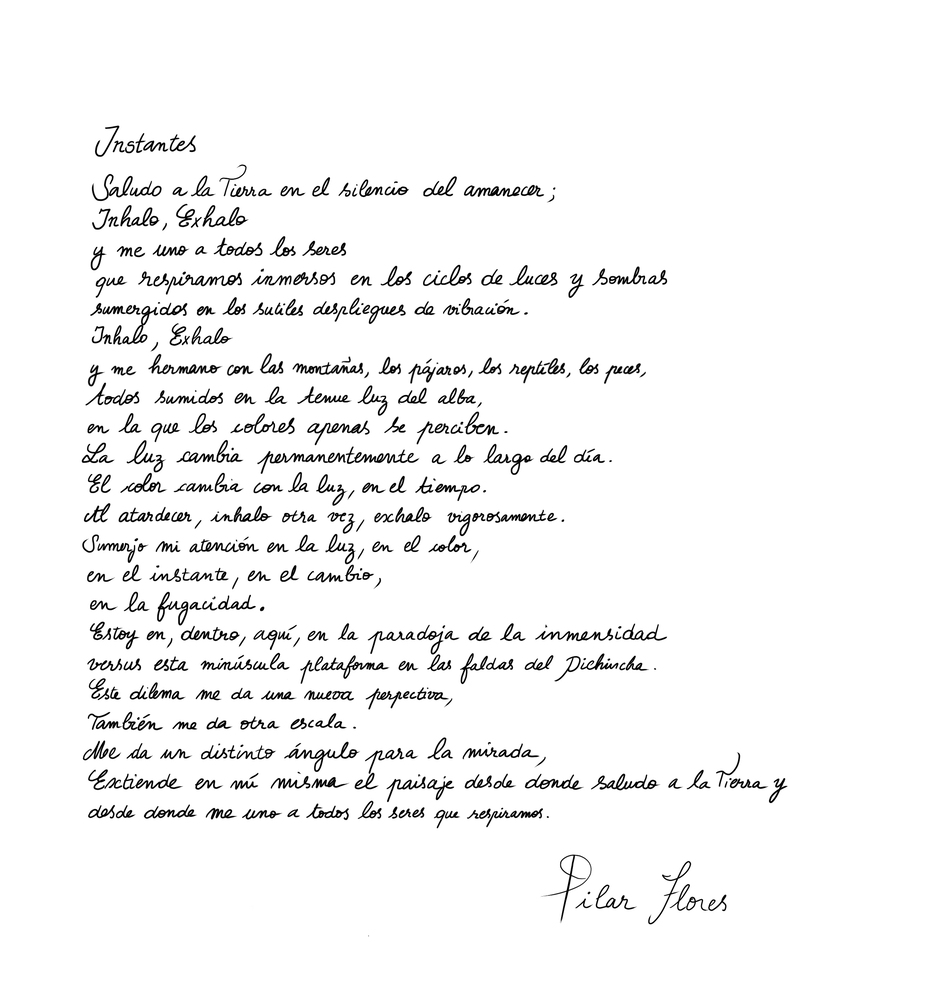 Instantes
Saludo a la Tierra en el silencio del amanecer;
Inhalo, Exhalo
y me uno a todos los seres
que respiramos inmersos en los ciclos de luces y sombras
sumergidos en los sutiles despliegues de vibración.
Inhalo, Exhalo
y me hermano con las montañas, los pájaros, los reptiles, los peces,
todos sumidos en la tenue luz del alba,
en la que los colores apenas se perciben.
La luz cambia permanentemente a lo largo del día.
El color cambia con la luz, en el tiempo.
Al atardecer, inhalo otra vez, exhalo vigorosamente.
Sumerjo mi atención en la luz, en el color,
en el instante, en el cambio,
en la fugacidad.
Estoy en, dentro, aquí, en la paradoja de la inmensidad
versus esta minúscula plataforma en las faldas del Pichincha.
Este dilema me da una nueva perpectiva,
También me da otra escala.
Me da un distinto ángulo para la mirada,
Extiende en mí misma el paisaje desde donde saludo a la Tierra y
desde donde me uno a todos los seres que respiramos.
Pilar Flores